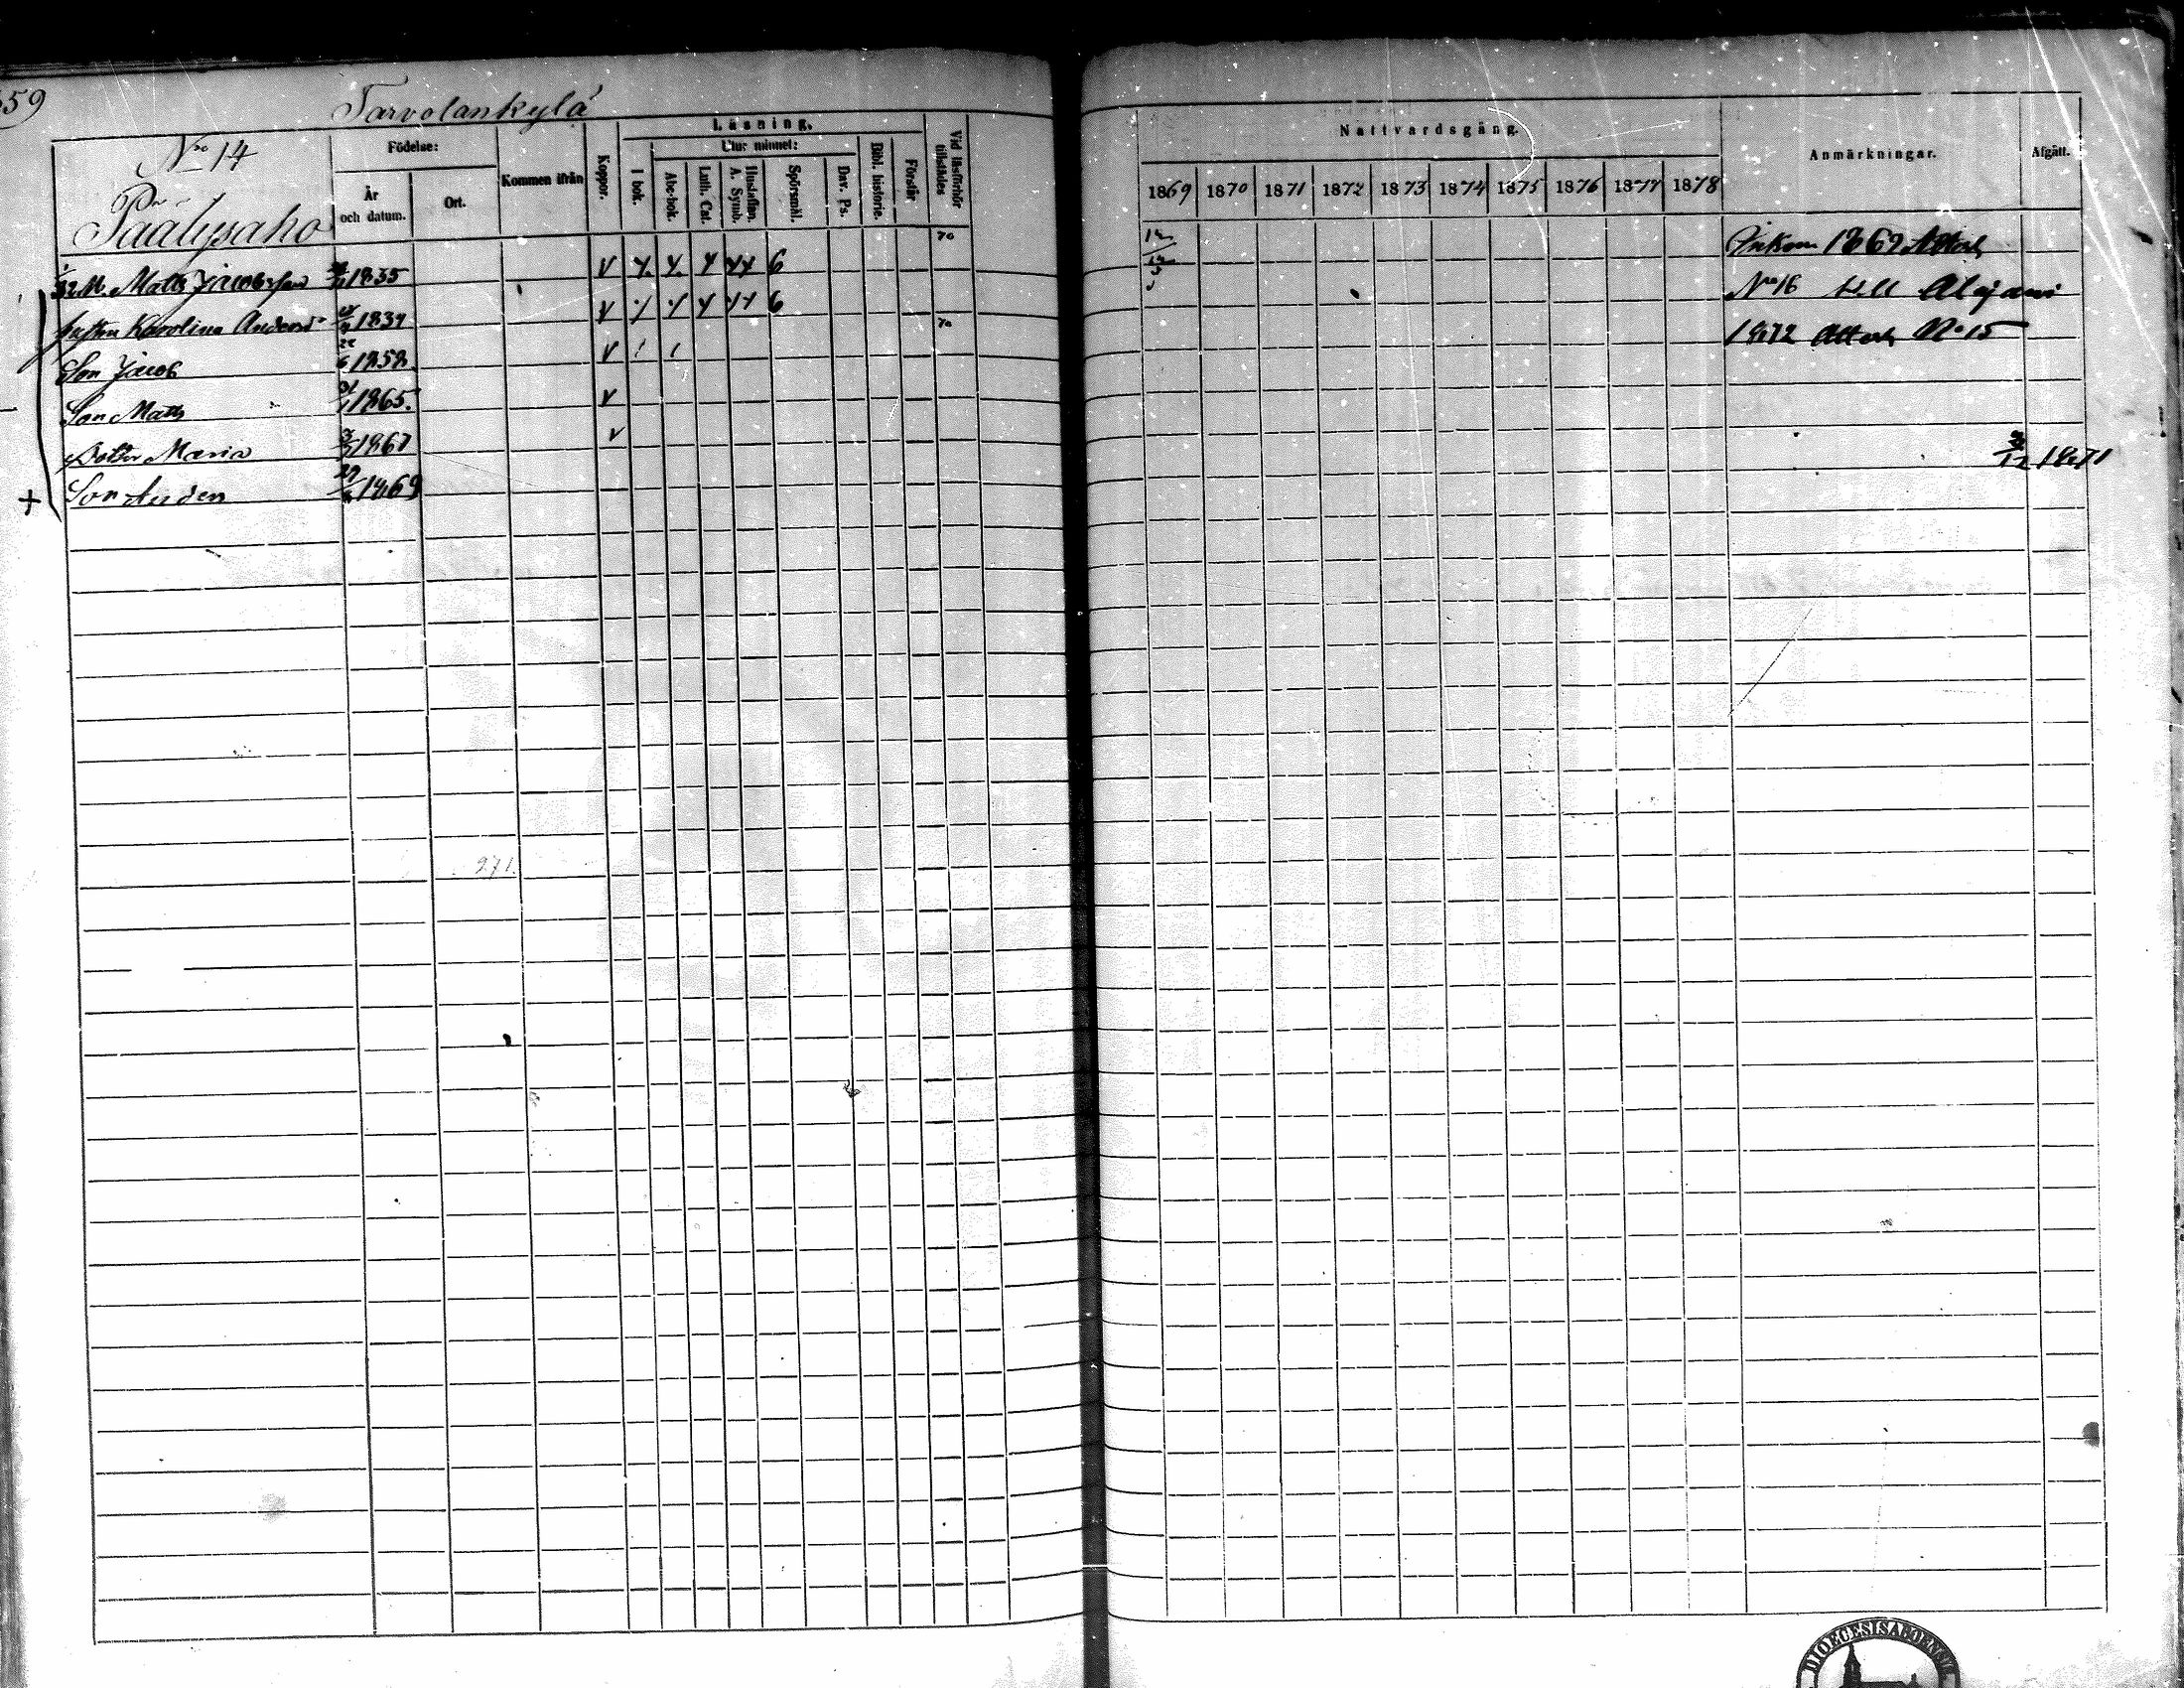 59
Tarvolankylä
No 14
Päälysaho
Födelse:
År
och datum.
Ort.
Kommen ifrån
Koppor.
Läsning.
I bok.
Utur minnet:
Abc-bok.
Luth. Cat.
Hustaflan.
A. Symb.
Spörsmål.
Dav. Ps.
Bibl. historie.
Förstår
Vid läsförhör
tillstädes
Matts Jacobsson 1835 6 70
Hustru Karolina Andersd 1834 6 70
Son Jacob 1858
Son Matts 1865
Dotter Maria 1867
Son Anders 1869
271
Nattvardsgång.
1869 1870 1871 1872 1873 1874 1875 1876 1877 1878
Anmärkningar.
Afgått.
Inkom 1869 Attest
No 16 till Alajärvi
1872 Attest No 15
1871
DIOECESIS ABOENSIS